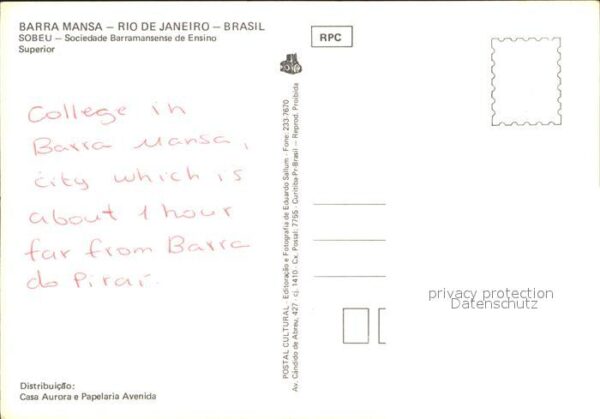 BARRA MANSA – RIO DE JANEIRO – BRASIL
SOBEU – Sociedade Barramansense de Ensino
Superior
RPC
College in
Barra Mansa,
city which is
about 1 hour
far from Barra
do Piraí.
POSTAL CULTURAL - Editoração e Fotografia de Eduardo Sallum - Fone: 233-7670
Av. Cândido de Abreu, 427 - cj. 1410 - Cx. Postal: 7755 - Curitiba-Pr-Brasil – Reprod. Proibida
privacy protection
Datenschutz
Distribuição:
Casa Aurora e Papelaria Avenida